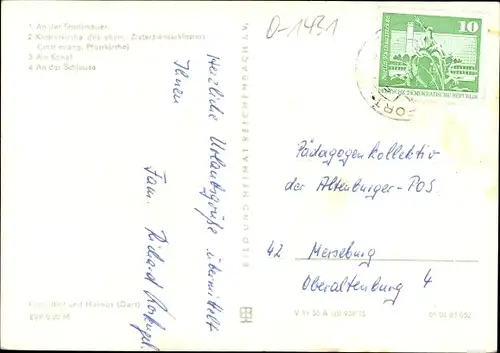 1 An der Stadtmauer
2 Klosterkirche des ehem. Zisterzienserklosters
(jetzt evang. Pfarrkirche)
3 Am Kanal
4 An der Schleuse
O-1431
10
Herzliche Urlaubsgrüße übermittelt
Ihnen
Fam. Richard
BILD UND HEIMAT REICHENBACH i. V.
Pädagogenkollektiv
der Altenburger-POS
42 Merseburg
Oberaltenburg 4
Foto: Bild und Heimat
EVP 0,20 M
V 11 50 A 1/B
01 03 03 052